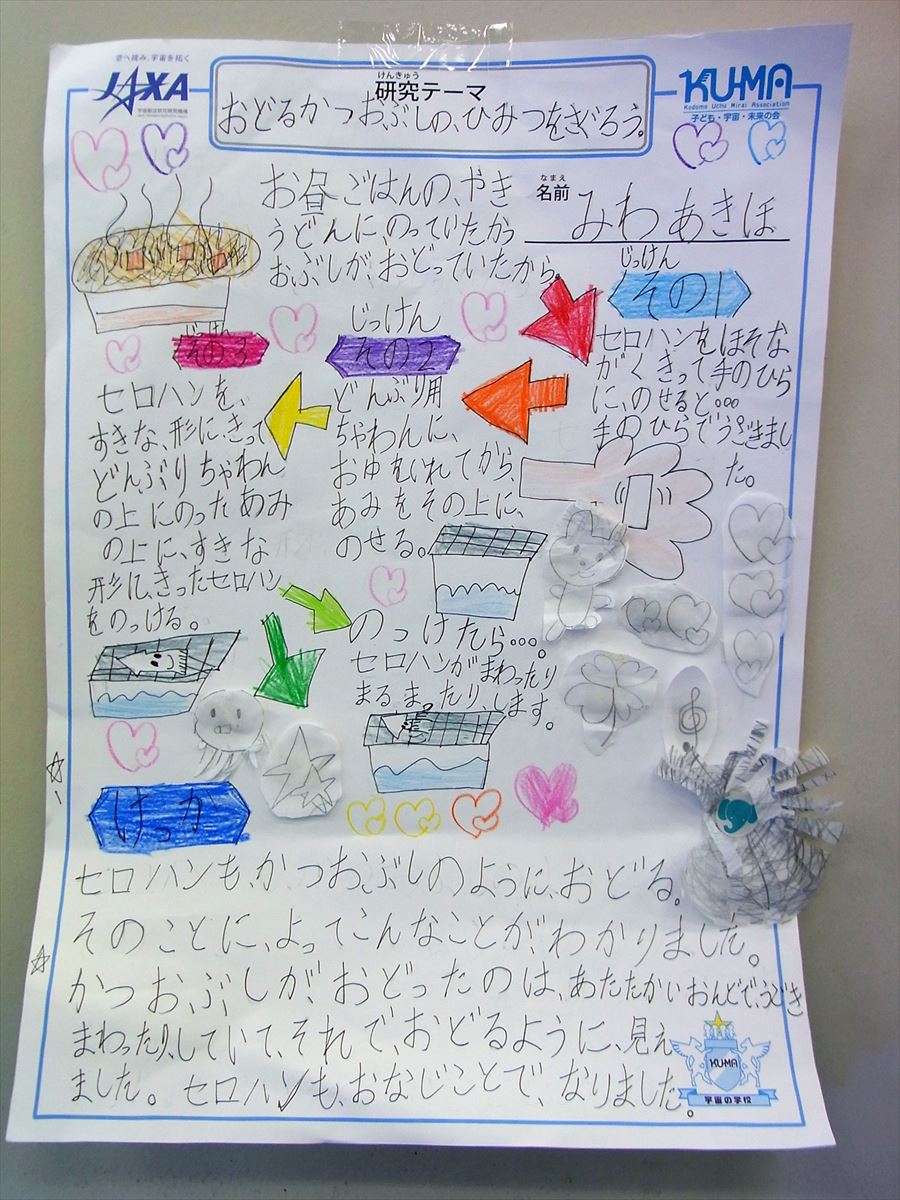 空へ挑み、宇宙を拓く
JAXA
宇宙航空研究開発機構
けんきゅう
研究テーマ
おどるかつおぶしの、ひみつをさぐろう。
KU-MA
Kodomo Uchu Mirai Association
子ども・宇宙・未来の会
なまえ
名前
みわ あきほ
お昼ごはんの、やき
うどんに、のっていたかつ
おぶしが、おどっていたから。
じっけん
その1
セロハンをほそな
がくきって手のひら
に、のせると…
手のひらでうごきまし
た。
じっけん
その2
どんぶり用
ちゃわんに、
おゆをいれてから、
あみをその上に、
のせる。
のっけたら…。
セロハンがまわったり
まるまったり、します。
じっけん
その3
セロハンを、
すきな、形に、きって
どんぶりちゃわん
の上にのったあみ
の上に、すきな
形に、きったセロハン
をのっける。
けっか
セロハンも、かつおぶしのように、おどる。
そのことに、よってこんなことがわかりました。
かつおぶしが、おどったのは、あたたかいおんどで、うごき
まわったり、していて、それで、おどるように、見え
ました。セロハンも、おなじことで、なりました。
KU-MA
宇宙の学校